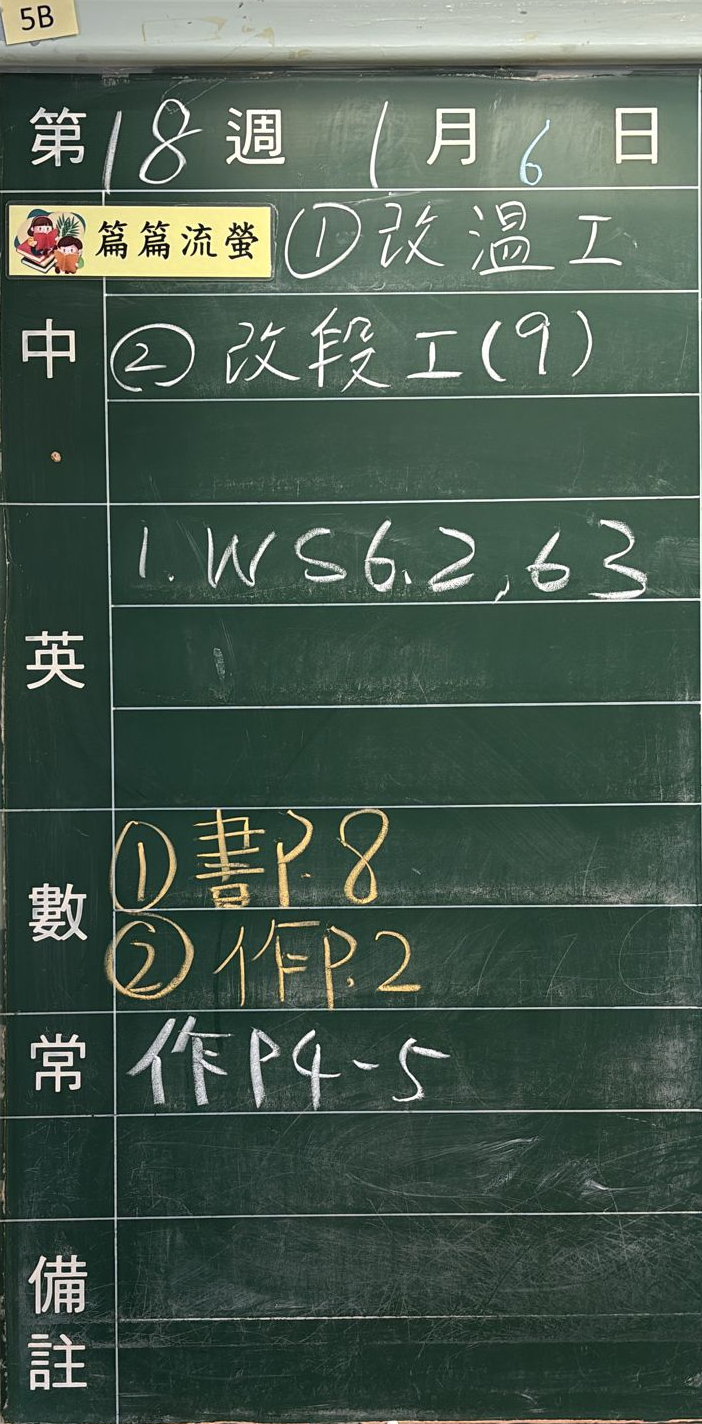 5B
第18週 1月6日
篇篇流螢 ①改溫工
中 ②改段工(9)
1. WS6.2, 63
英
①書P.8
數
②作P.2
常 作P4-5
備註